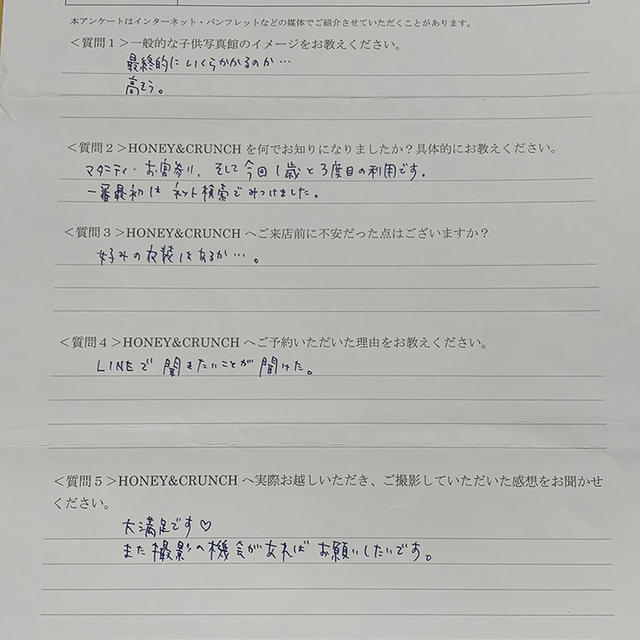 本アンケートはインターネット・パンフレットなどの媒体でご紹介させていただくことがあります。
＜質問１＞一般的な子供写真館のイメージをお教えください。
最終的にいくらかかるのか…
高そう。
＜質問２＞HONEY&CRUNCH を何でお知りになりましたか？具体的にお教えください。
マタニティ・お宮参り、そして今回1歳と3度目の利用です。
一番最初はネット検索でみつけました。
＜質問３＞HONEY&CRUNCH へご来店前に不安だった点はございますか？
好みの衣装はあるか…。
＜質問４＞HONEY&CRUNCH へご予約いただいた理由をお教えください。
LINEで聞きたいことが聞けた。
＜質問５＞HONEY&CRUNCH へ実際お越しいただき、ご撮影していただいた感想をお聞かせ
ください。
大満足です♡
また撮影の機会があればお願いしたいです。